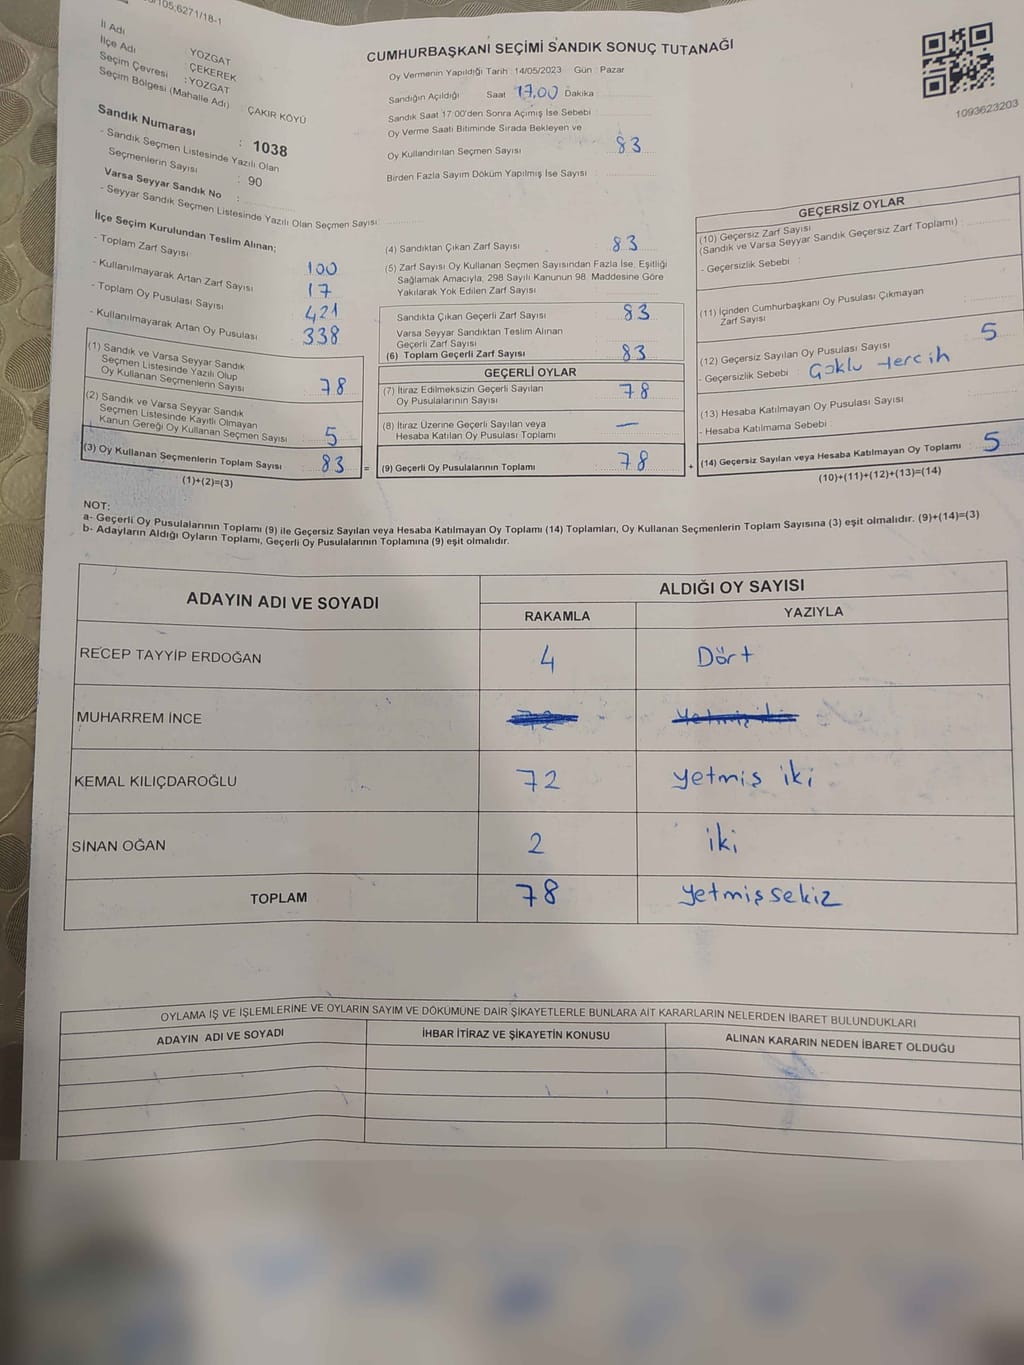 105.6271/18-1
İl Adı : YOZGAT
İlçe Adı : ÇEKEREK
Seçim Çevresi : YOZGAT
Seçim Bölgesi (Mahalle Adı) : ÇAKIR KÖYÜ
Sandık Numarası : 1038
- Sandık Seçmen Listesinde Yazılı Olan
Seçmenlerin Sayısı : 90
Varsa Seyyar Sandık No :
- Seyyar Sandık Seçmen Listesinde Yazılı Olan Seçmen Sayısı:
CUMHURBAŞKANI SEÇİMİ SANDIK SONUÇ TUTANAĞI
Oy Vermenin Yapıldığı Tarih : 14/05/2023 Gün : Pazar
Sandığın Açıldığı Saat 17.00 Dakika
Sandık Saat 17:00'den Sonra Açımış İse Sebebi
Oy Verme Saati Bitiminde Sırada Bekleyen ve
Oy Kullandırılan Seçmen Sayısı : 83
Birden Fazla Sayım Döküm Yapılmış İse Sayısı :
1093623203
İlçe Seçim Kurulundan Teslim Alınan;
- Toplam Zarf Sayısı 100
- Kullanılmayarak Artan Zarf Sayısı : 17
- Toplam Oy Pusulası Sayısı : 421
- Kullanılmayarak Artan Oy Pusulası : 338
(1) Sandık ve Varsa Seyyar Sandık
Seçmen Listesinde Yazılı Olup
Oy Kullanan Seçmenlerin Sayısı : 78
(2) Sandık ve Varsa Seyyar Sandık
Seçmen Listesinde Kayıtlı Olmayan
Kanun Gereği Oy Kullanan Seçmen Sayısı : 5
(3) Oy Kullanan Seçmenlerin Toplam Sayısı : 83 =
(1)+(2)=(3)
(4) Sandıktan Çıkan Zarf Sayısı : 83
(5) Zarf Sayısı Oy Kullanan Seçmen Sayısından Fazla İse, Eşitliği
Sağlamak Amacıyla, 298 Sayılı Kanunun 98. Maddesine Göre
Yakılarak Yok Edilen Zarf Sayısı :
Sandıkta Çıkan Geçerli Zarf Sayısı : 83
Varsa Seyyar Sandıktan Teslim Alınan
Geçerli Zarf Sayısı :
(6) Toplam Geçerli Zarf Sayısı : 83
GEÇERLİ OYLAR
(7) İtiraz Edilmeksizin Geçerli Sayılan
Oy Pusulalarının Sayısı : 78
(8) İtiraz Üzerine Geçerli Sayılan veya
Hesaba Katılan Oy Pusulası Toplamı : —
(9) Geçerli Oy Pusulalarının Toplamı : 78 +
GEÇERSİZ OYLAR
(10) Geçersiz Zarf Sayısı
(Sandık ve Varsa Seyyar Sandık Geçersiz Zarf Toplamı) :
- Geçersizlik Sebebi :
(11) İçinden Cumhurbaşkanı Oy Pusulası Çıkmayan
Zarf Sayısı :
(12) Geçersiz Sayılan Oy Pusulası Sayısı : 5
- Geçersizlik Sebebi : Çoklu tercih
(13) Hesaba Katılmayan Oy Pusulası Sayısı :
- Hesaba Katılmama Sebebi :
(14) Geçersiz Sayılan veya Hesaba Katılmayan Oy Toplamı : 5
(10)+(11)+(12)+(13)=(14)
NOT:
a- Geçerli Oy Pusulalarının Toplamı (9) ile Geçersiz Sayılan veya Hesaba Katılmayan Oy Toplamı (14) Toplamları, Oy Kullanan Seçmenlerin Toplam Sayısına (3) eşit olmalıdır. (9)+(14)=(3)
b- Adayların Aldığı Oyların Toplamı, Geçerli Oy Pusulalarının Toplamına (9) eşit olmalıdır.
ADAYIN ADI VE SOYADI
ALDIĞI OY SAYISI
RAKAMLA YAZIYLA
RECEP TAYYİP ERDOĞAN 4 Dört
MUHARREM İNCE 72 yetmiş iki
KEMAL KILIÇDAROĞLU 72 yetmiş iki
SİNAN OĞAN 2 iki
TOPLAM 78 yetmiş sekiz
OYLAMA İŞ VE İŞLEMLERİNE VE OYLARIN SAYIM VE DÖKÜMÜNE DAİR ŞİKAYETLERLE BUNLARA AİT KARARLARIN NELERDEN İBARET BULUNDUKLARI
ADAYIN ADI VE SOYADI İHBAR İTİRAZ VE ŞİKAYETİN KONUSU ALINAN KARARIN NEDEN İBARET OLDUĞU